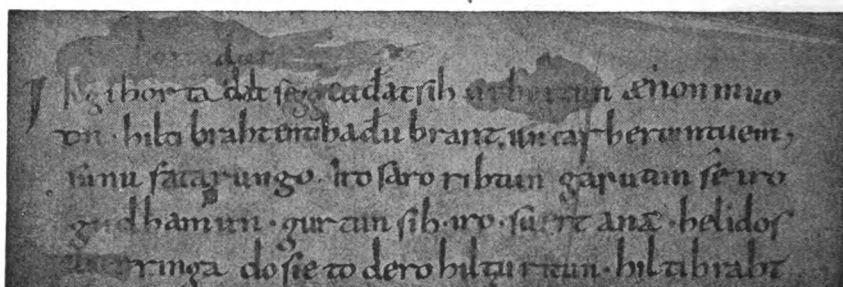 Ik gihorta dat seggen dat sih urhettun ænon muo
tin · hiltibraht enti haðubrant · untar heriun tuem,
sunufatarungo · iro saro rihtun garutun se iro
guðhamun · gurtun sih · iro · suert ana · helidos
ringa do sie to dero hiltu ritun · hiltibraht